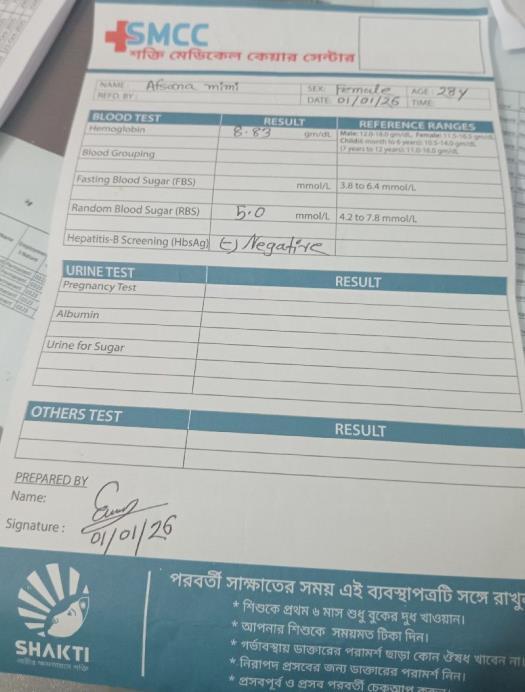 SMCC
শক্তি মেডিকেল কেয়ার সেন্টার
NAME: Afsana mimi SEX: Female AGE: 28Y
REFD. BY: DATE: 01/01/26 TIME:
BLOOD TEST RESULT REFERENCE RANGES
Hemoglobin 8.83 gm/dL Male: 12.0-18.0 gm/dL, Female: 11.5-16.5 gm/dL
Child(6 month to 6 years): 10.5-14.0 gm/dL
(7 years to 12 years): 11.0-16.0 gm/dL
Blood Grouping
Fasting Blood Sugar (FBS) mmol/L 3.8 to 6.4 mmol/L
Random Blood Sugar (RBS) 5.0 mmol/L 4.2 to 7.8 mmol/L
Hepatitis-B Screening (HbsAg) (-) Negative
URINE TEST RESULT
Pregnancy Test
Albumin
Urine for Sugar
OTHERS TEST RESULT
PREPARED BY
Name:
Signature: 01/01/26
SHAKTI
পরবর্তী সাক্ষাতের সময় এই ব্যবস্থাপত্রটি সঙ্গে রাখু
* শিশুকে প্রথম ৬ মাস শুধু বুকের দুধ খাওয়ান।
* আপনার শিশুকে সময়মত টিকা দিন।
* গর্ভাবস্থায় ডাক্তারের পরামর্শ ছাড়া কোন ঔষধ খাবেন না।
* নিরাপদ প্রসবের জন্য ডাক্তারের পরামর্শ নিন।
* প্রসবপূর্ব ও প্রসব পরবর্তী চেকআপ